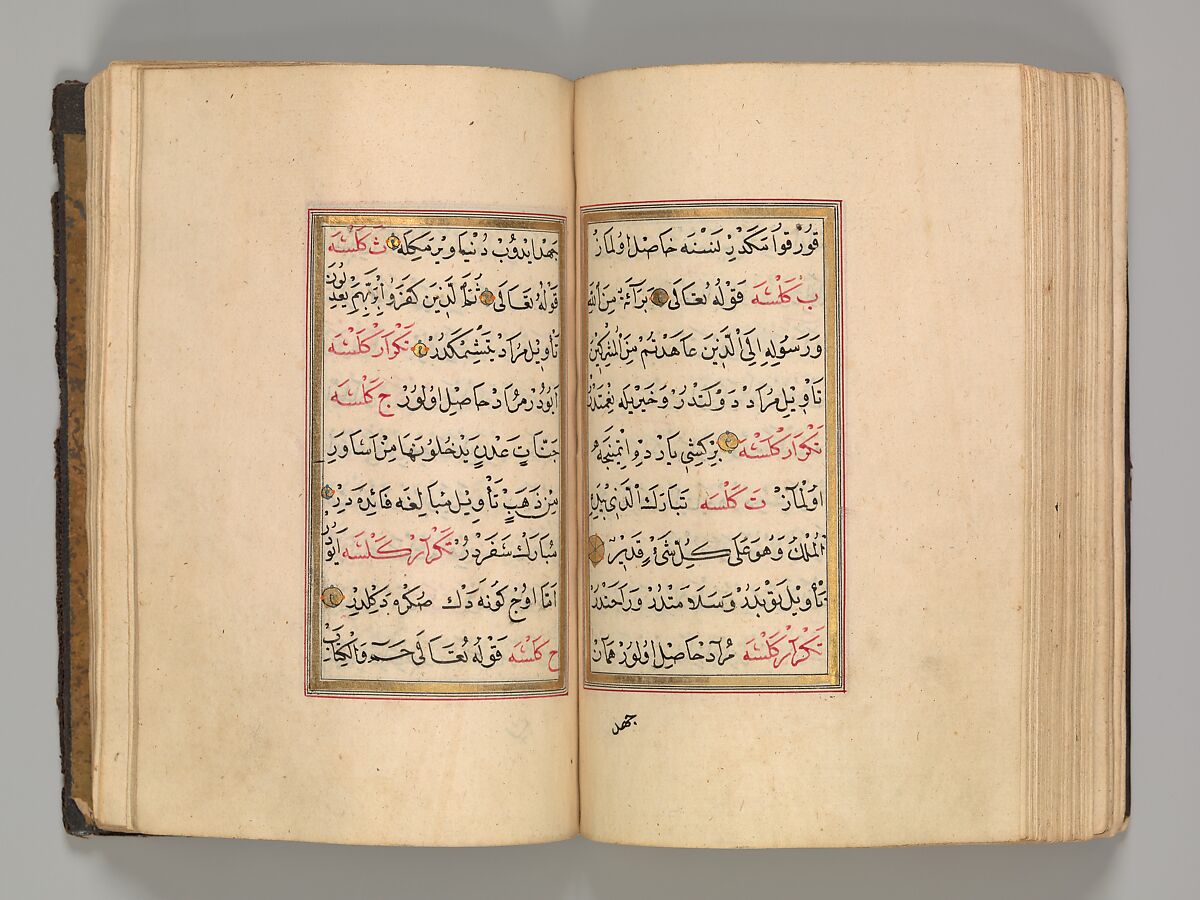 قورقو مكدر نسنه حاصل اولماز
ب كلسه قوله تعالى براءة من الله
ورسوله الى الذين عاهدتم من المشركين
تأويل مراد دولتدر وخيريله
تكرار كلسه بر كشى ياردو ايتمينجه
اولماز ت كلسه تبارك الذى بيده
الملك وهو على كل شىء قدير
تأويل توبه در وسلامتدر وراحتدر
تكرار كلسه مراد حاصل اولور همان
جهد
جهد ايدوب دنيا ويرمكله ث كلسه
قوله تعالى ثم الذين كفروا بربهم يعدلون
تأويل مراد يتشمكدر تكرار كلسه
ايودر مراد حاصل اولور ج كلسه
جنات عدن يدخلونها من اساور
من ذهب تأويل مبالغه فائده در
مبارك سفردر تكرار كلسه ايودر
اما اوج كونه دك صكره
ح كلسه قوله تعالى حم والكتاب